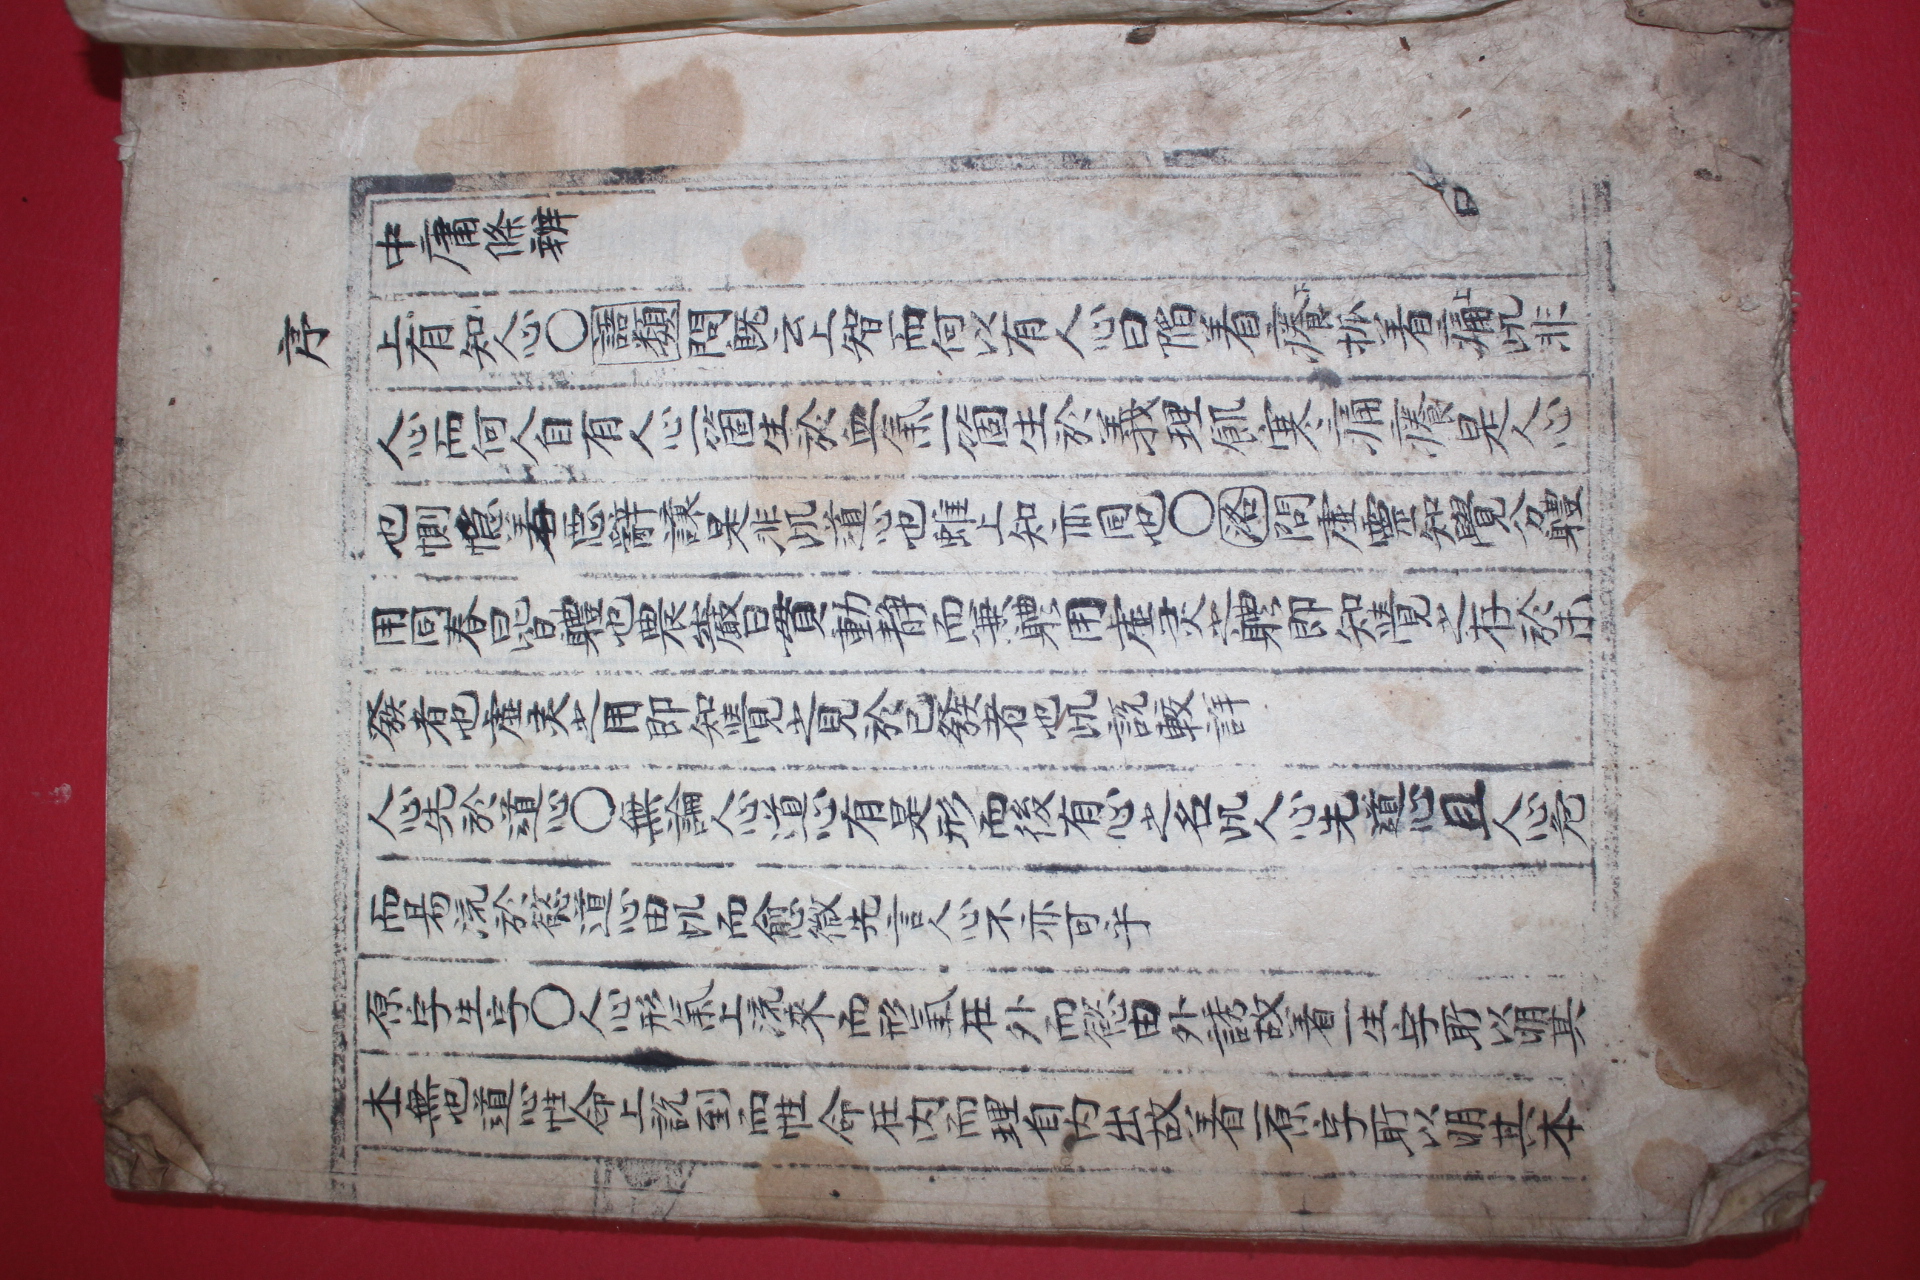 序
中庸條辨
上有知人心〇語類問旣云上智而何以有人心曰陷着癢抓着痛此非
下
上
人心而何人自有人心一箇生於血氣一箇生於義理飢寒痛癢是人心
也惻惻隱羞惡辭讓是非此道心也雖上知亦同也〇洛問虛靈知覺分體
用同春曰皆體也農巖曰貫動静而兼軆用虛灵之軆即知覺之存於未
發者也虛灵之用即知覺之見於已發者也此說較詳
人心先於道心〇無論人心道心有是形而後有心之名此人心先道心且人心危
而易流於慾道心由此而愈微先言人心不亦可乎
原字生字〇人心形氣上流來而形氣在外而慾由外誘故着一生字所以明其
本無也道心性命上說到而性命在内而理自内出故着一原字所以明其本